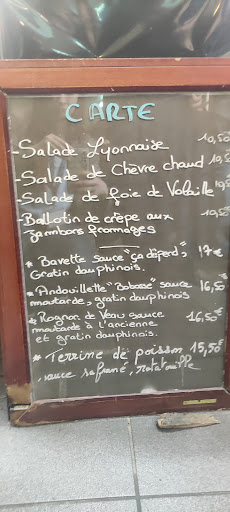 CARTE
- Salade Lyonnaise 10,50
- Salade de Chèvre chaud 10,50
- Salade de foie de Volaille
- Ballotin de crêpe aux 10,50
jambons fromages
* Bavette sauce "ça déperd", 17€
Gratin dauphinois.
* Andouillette "Bobosse" sauce 16,50€
moutarde, gratin dauphinois
* Rognon de Veau sauce 16,50€
moutarde à l'ancienne
et gratin dauphinois.
* Terrine de poisson 15,50€
, sauce safrané, ratatouille